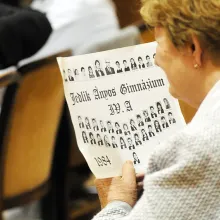 Jedlik Ányos Gimnázium
IV. A
1984